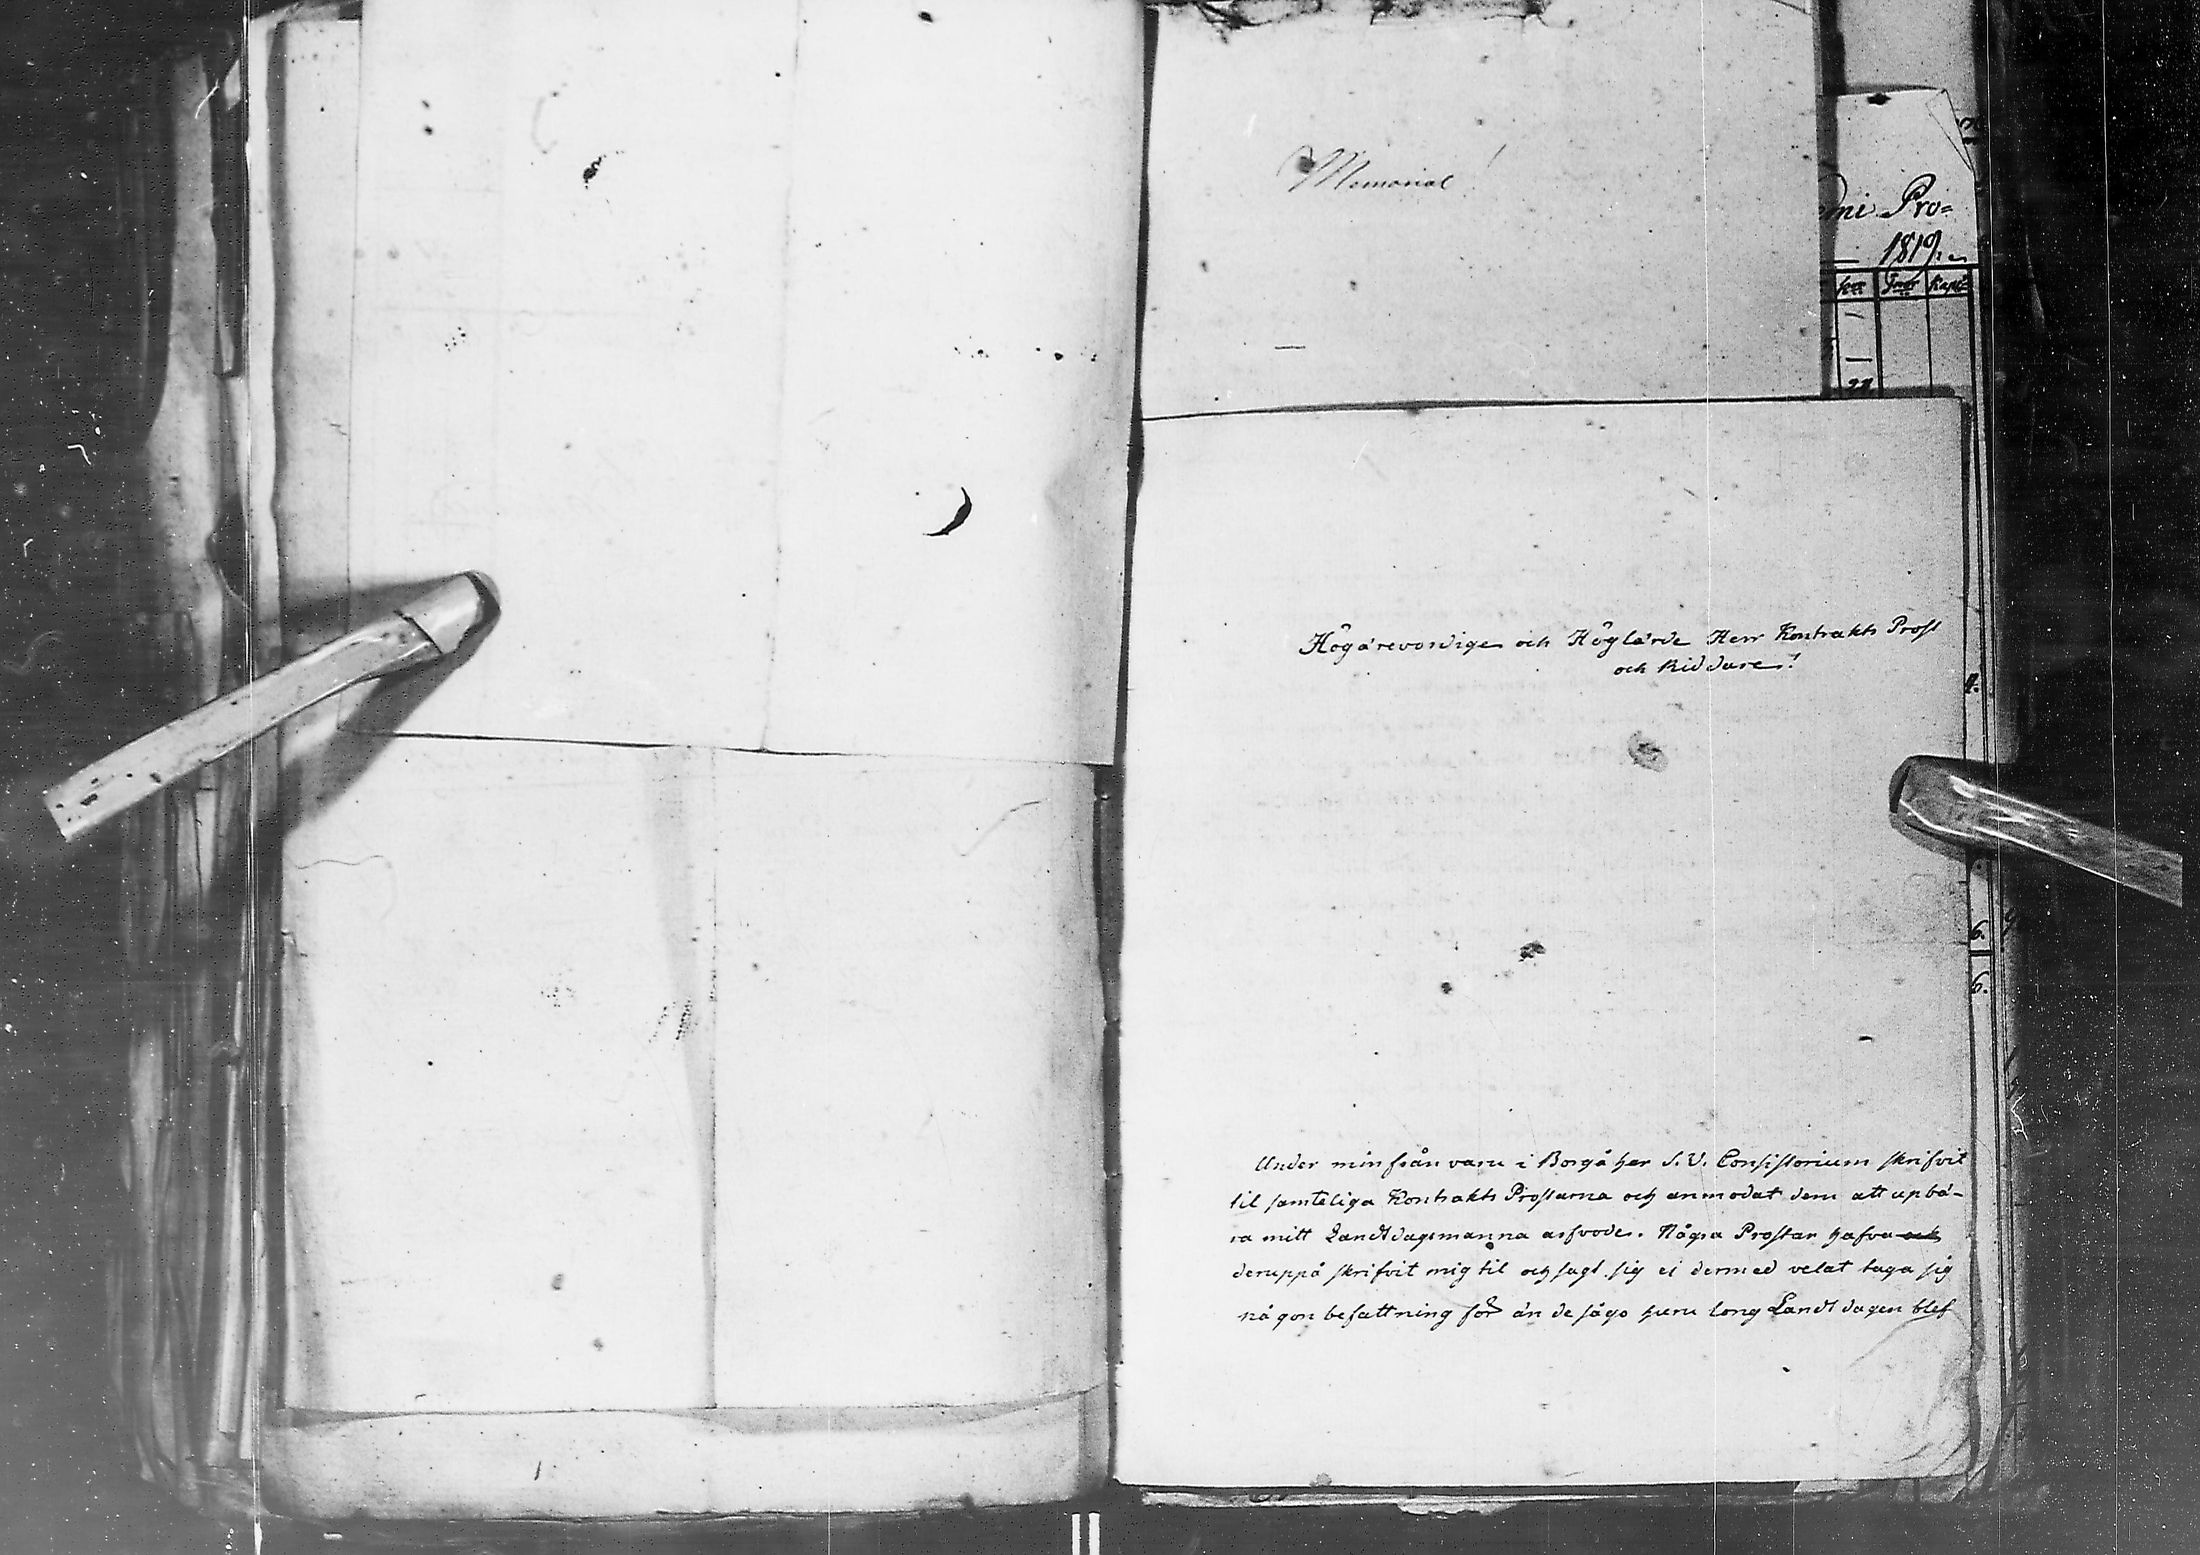 Memorial!
emi Pro=
1819.
22.
Högärevördige och Höglärde Herr Kontrakts Prost
och Riddare!
4.
6.
6.
Under min från varu i Borgå har S. V. Consistorium skrifvit
til samteliga Kontrakts Prostarna och anmodat dem att upbä-
ra mitt Landtdagsmanna arfvode. Några Prostar hafva och
deruppå skrifvit mig til och sagt sig ei dermed velat taga sig
någon befattning för än de sågo huru long Landtdagen blef